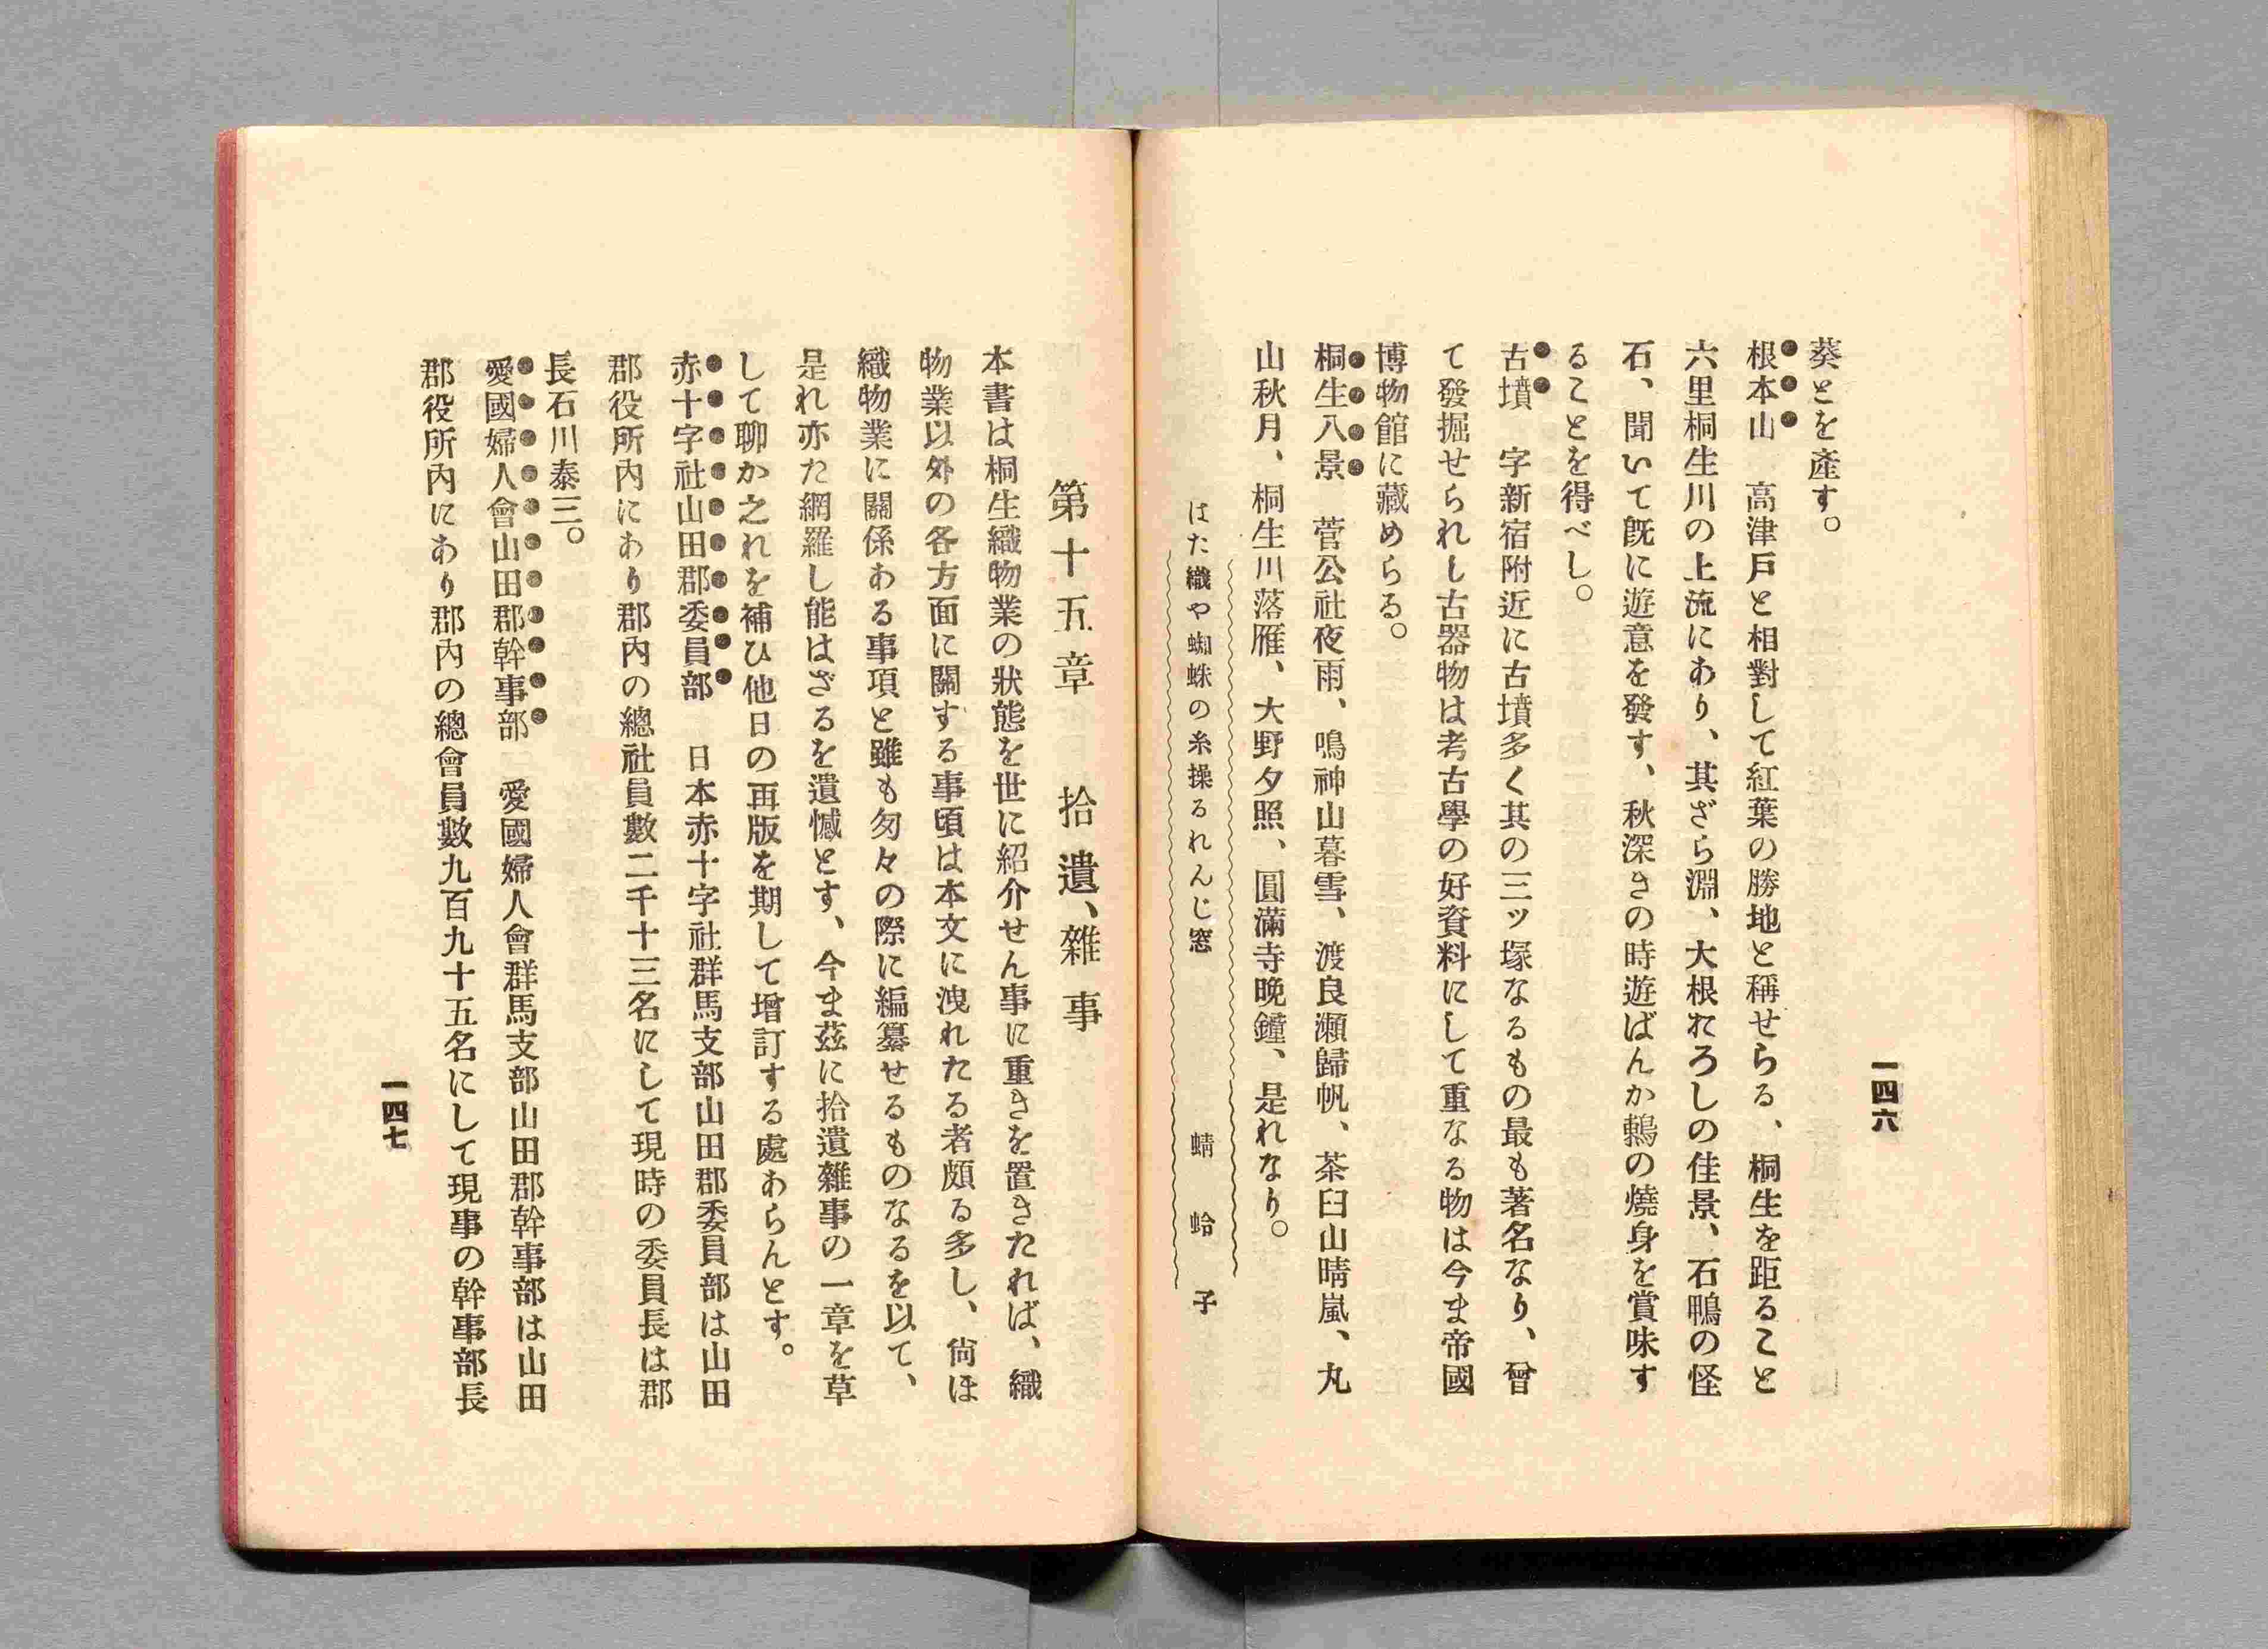 一四六
葵とを產す。
根本山　高津戸と相對して紅葉の勝地と稱せらる、桐生を距ること
六里桐生川の上流にあり、其ざら淵、大根おろしの佳景、石鴨の怪
石、聞いて旣に遊意を發す、秋深きの時遊ばんか鶫の燒身を賞味す
ることを得べし。
古墳　字新宿附近に古墳多く其の三ッ塚なるもの最も著名なり、曾
て發掘せられし古器物は考古學の好資料にして重なる物は今ま帝國
博物館に藏めらる。
桐生八景　菅公社夜雨、鳴神山暮雪、渡良瀬歸帆、茶臼山晴嵐、丸
山秋月、桐生川落雁、大野夕照、圓滿寺晩鐘、是れなり。
はた織や蜘蛛の糸操るれんじ窓　蜻蛤子
第十五章　拾遺、雜事
本書は桐生織物業の狀態を世に紹介せん事に重きを置きたれば、織
物業以外の各方面に關する事頃は本文に洩れたる者頗る多し、尙ほ
織物業に關係ある事項と雖も匆々の際に編纂せるものなるを以て、
是れ亦た網羅し能はざるを遺憾とす、今ま茲に拾遺雜事の一章を草
して聊か之れを補ひ他日の再版を期して增訂する處あらんとす。
赤十字社山田郡委員部　日本赤十字社群馬支部山田郡委員部は山田
郡役所內にあり郡內の總社員數二千十三名にして現時の委員長は郡
長石川泰三。
愛國婦人會山田郡幹事部　愛國婦人會群馬支部山田郡幹事部は山田
郡役所內にあり郡內の總會員數九百九十五名にして現事の幹事部長
一四七